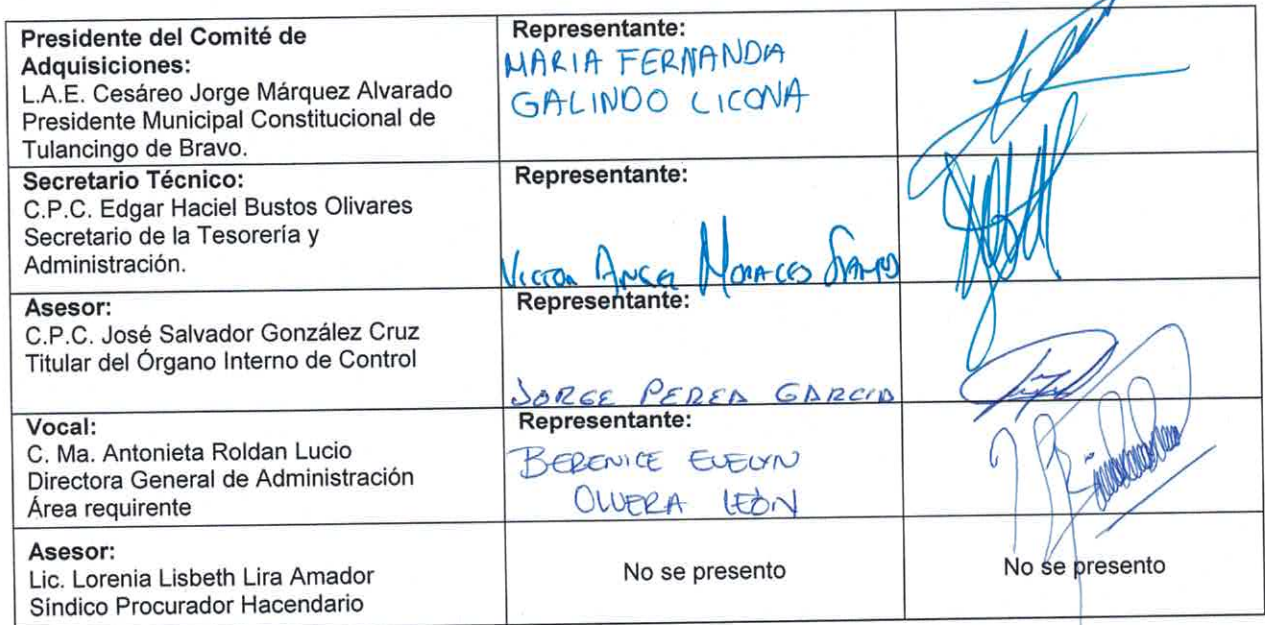 Presidente del Comité de
Adquisiciones:
L.A.E. Cesáreo Jorge Márquez Alvarado
Presidente Municipal Constitucional de
Tulancingo de Bravo.
Representante:
MARIA FERNANDA
GALINDO LICONA
Secretario Técnico:
C.P.C. Edgar Haciel Bustos Olivares
Secretario de la Tesorería y
Administración.
Representante:
VICTOR ANGEL MORALES
Asesor:
C.P.C. José Salvador González Cruz
Titular del Órgano Interno de Control
Representante:
JORGE PEREA GARCIA
Vocal:
C. Ma. Antonieta Roldan Lucio
Directora General de Administración
Área requirente
Representante:
BERENICE EVELYN
OLVERA LEÓN
Asesor:
Lic. Lorenia Lisbeth Lira Amador
Síndico Procurador Hacendario
No se presento
No se presento